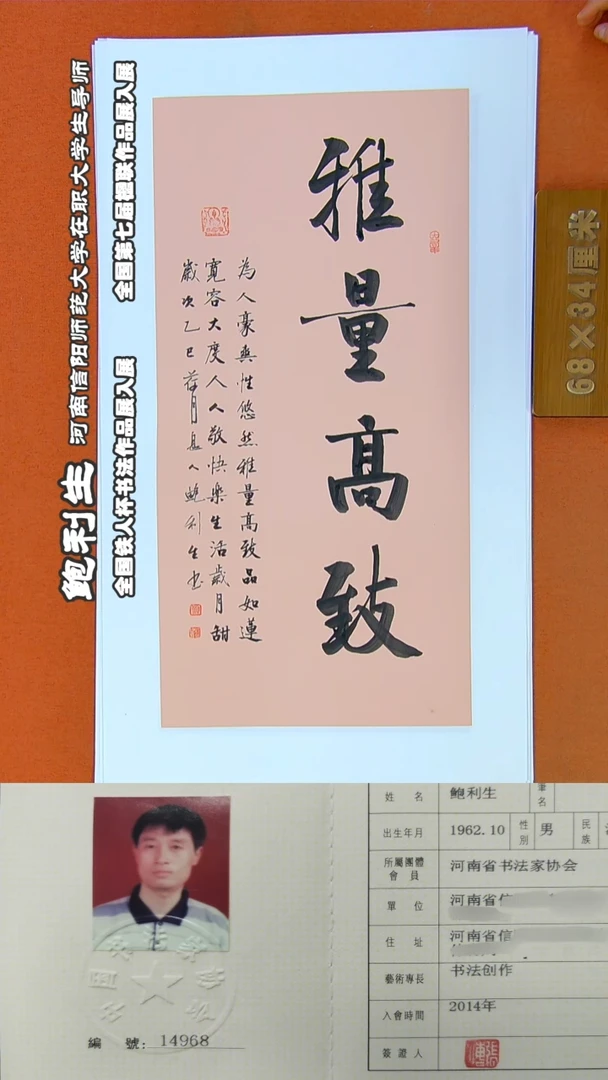 鲍利生 河南信阳师范大学在职大学生导师
全国铁人杯书法作品展入展 全国第七届楹联作品展入展
雅量高致
為人豪爽性悠然雅量高致品如蓮
寬容大度人人敬快樂生活歲月甜
歲次乙巳荷月 人鮑利生书
68×34厘米
編 號: 14968
姓 名 鲍利生 筆名
出生年月 1962.10 性別 男 民族
所屬團體會員 河南省书法家协会
單 位 河南省信
住 址 河南省信
藝術專長 书法创作
入會時間 2014年
簽證人